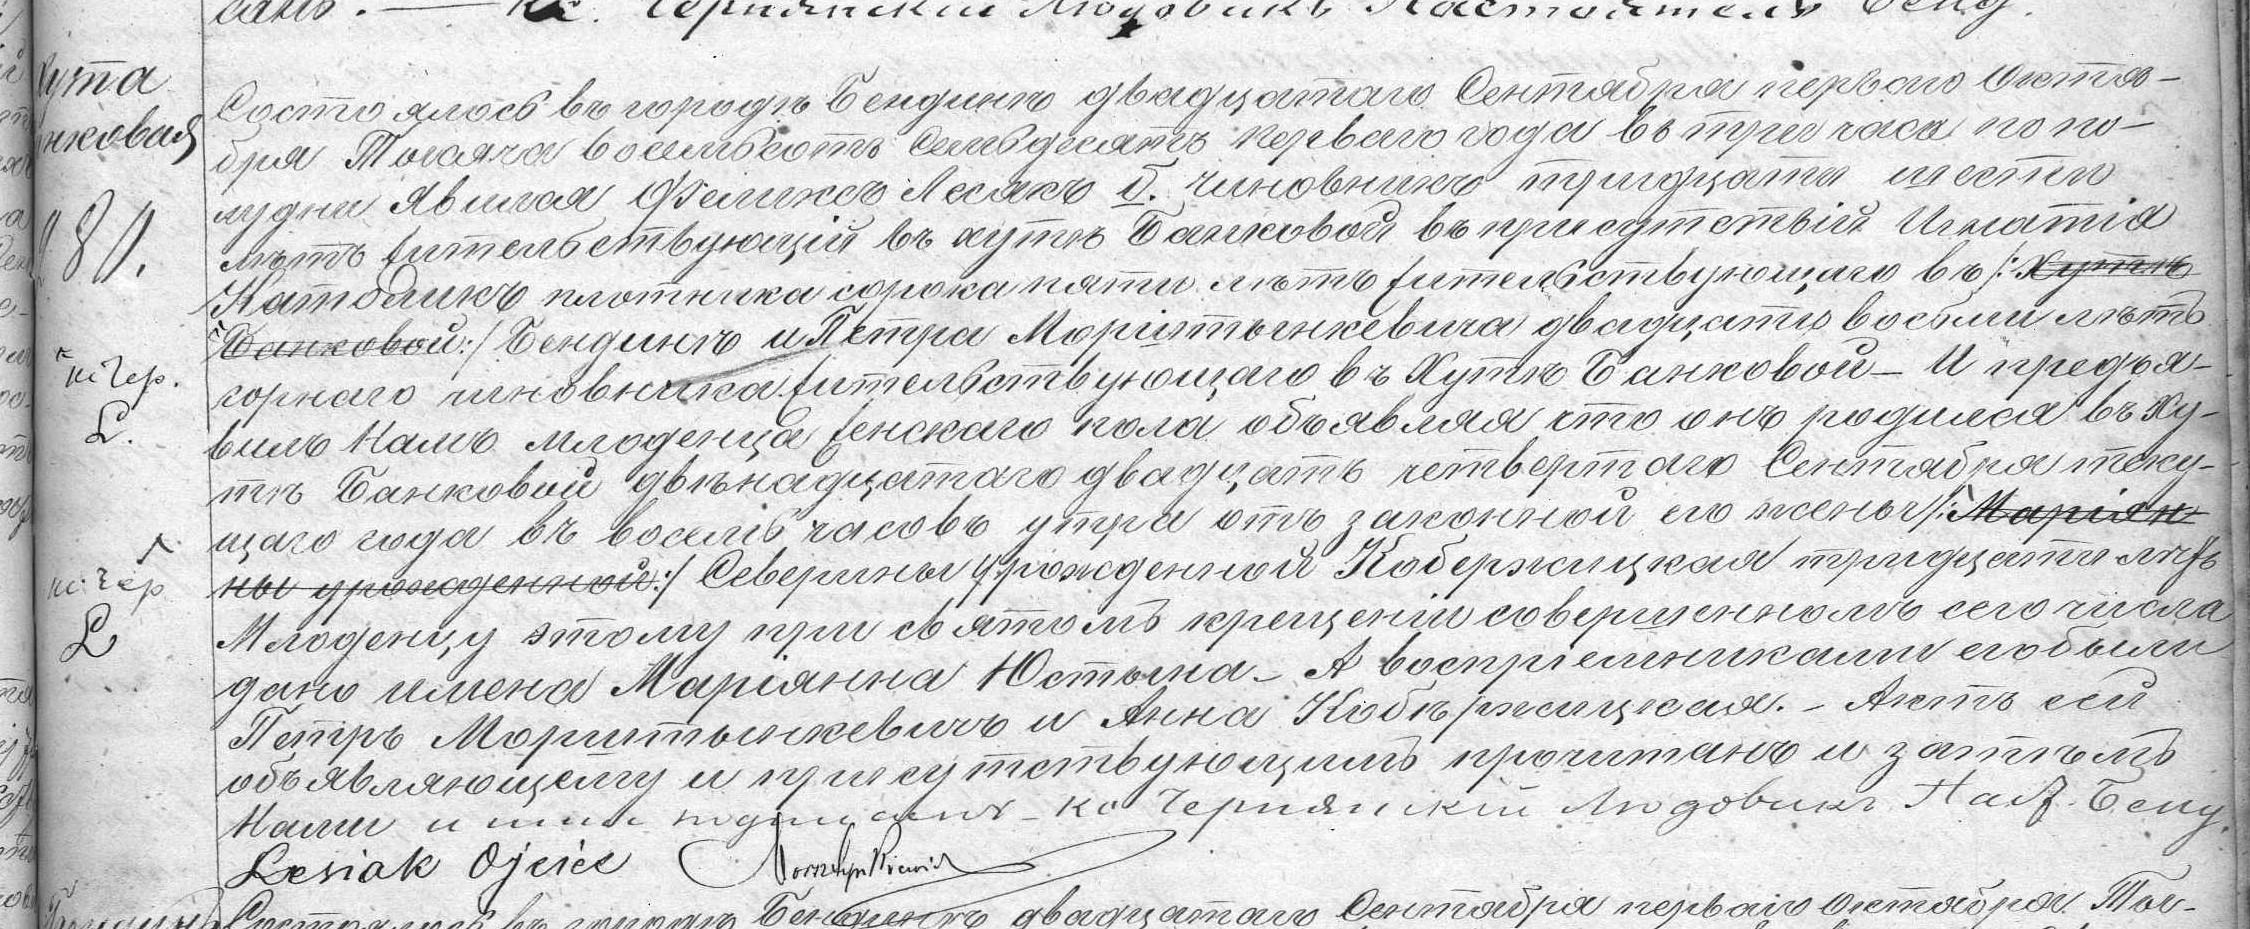 санъ. — Кс. Чернянскій Людовикъ Настоятель Бенд.
Хута
Банковая
180.
Кс Чер.
L.
Кс: Чер
L
Состоялось въ городѣ Бендинѣ двадцатаго Сентября перваго Октя-
бря Тысяча восемьсотъ семьдесятъ перваго года въ три часа по по-
лудни явился Феликсъ Лесякъ б. чиновникъ тридцати шести
лѣтъ жительствующій въ хутѣ Банковой въ присутствіи Игнатія
плотника сорока пяти лѣтъ жительствующаго въ /: Хутѣ
Банковой :/ Бендинѣ и Петра Морштынкевича двадцати восьми лѣтъ
горнаго чиновника жительствующаго въ Хутѣ Банковой – И предъя-
вилъ Намъ млоденца женскаго пола объявляя что онъ родился въ Ху-
тѣ Банковой двѣнадцатаго двадцать четвертаго Сентября теку-
щаго года въ восемь часовъ утра отъ законной его жены /: Маріян-
ны урожденной :/ Северины урожденной Кобержицкая тридцати лѣтъ
Млоденцу этому при святомъ крещеніи совершенномъ сего числа
дано имена Маріянна Юстына – А воспріемниками его были
Петръ Морштынкевичъ и Анна Кобѣржицкая. – Актъ сей
объявляющему и присутствующимъ прочитанъ и затѣмъ
Нами и ими подписанъ – Кс Чернянскій Людовикъ Наст. Бенд.
Lesiak Ojciec Morsztynkiewicz
Состоялось въ городѣ Бендинѣ двадцатаго Сентября перваго Октября Тыс-